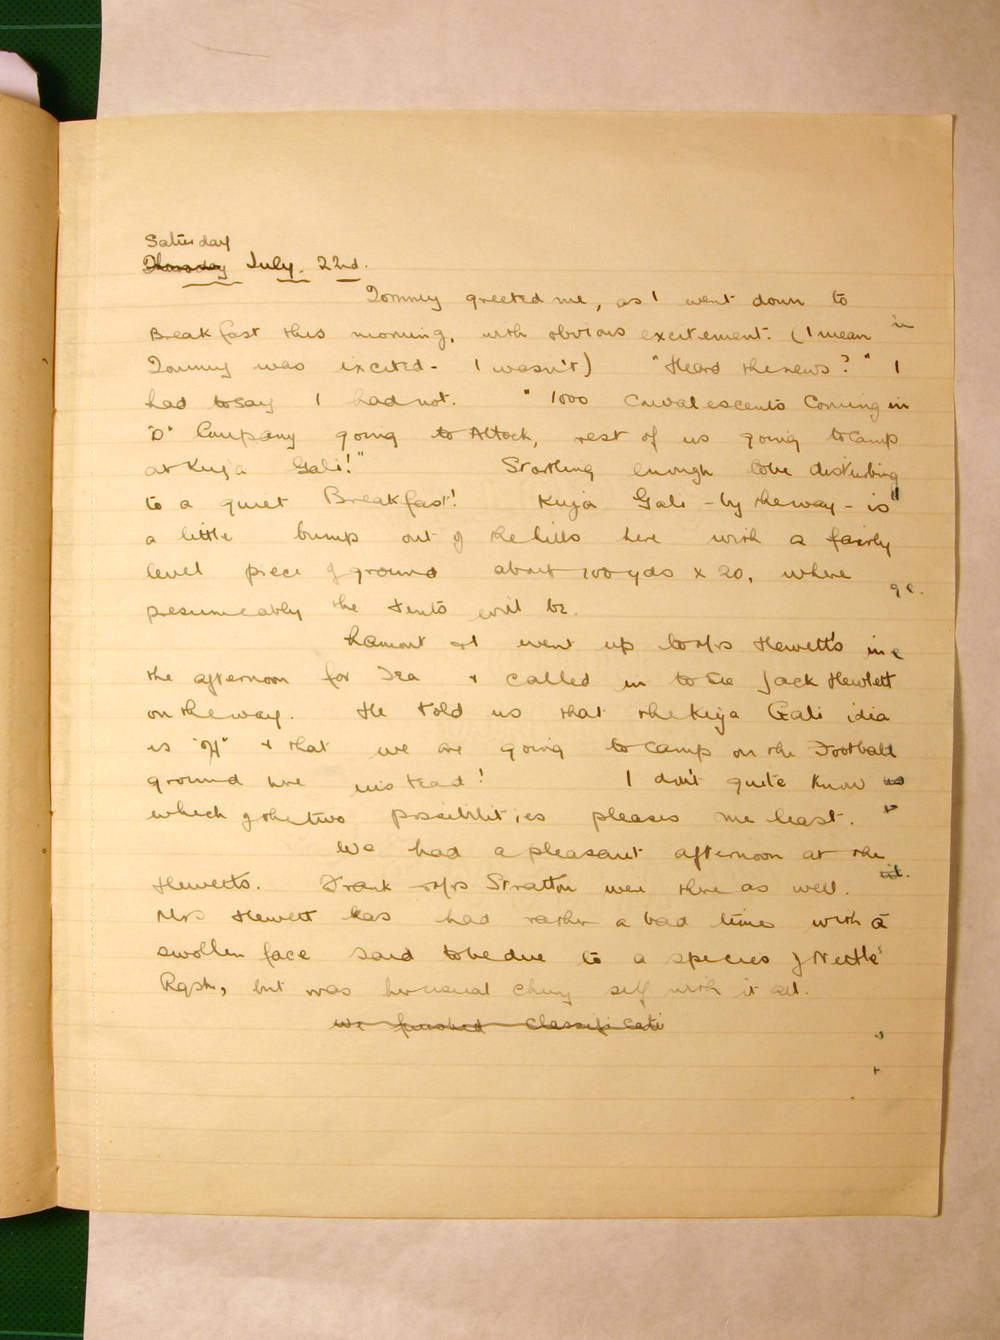 Saturday
Thursday July. 22nd.
Tommy greeted me, as I went down to
Breakfast this morning, with obvious excitement. (I mean
Tommy was excited - I wasn't) "Heard the news?" I
had to say I had not. "1000 Convalescents Coming in
"D" Company going to Attock, rest of us going to camp
at Kuja Gali!" Startling enough to be disturbing
to a quiet Breakfast! Kuja Gali - by the way - is
a little bump out of the hills here with a fairly
level piece of ground about 100 yds x 20, where
presumeably the tents will be.
Lamont & I went up to Mrs Hewett's in
the afternoon for Tea & called in to see Jack Hewlett
on the way. He told us that the Kuja Gali idia
is & that we are going to camp on the Football
ground here instead! I don't quite know
which of the two possibilities pleases me least.
We had a pleasant afternoon at the
Hewetts. Frank & Mrs Stratton were there as well.
Mrs Hewett has had rather a bad time with a
swollen face said to be due to a species of Nettle
Rash, but was her usual cheery self with it all.
We finished classificati